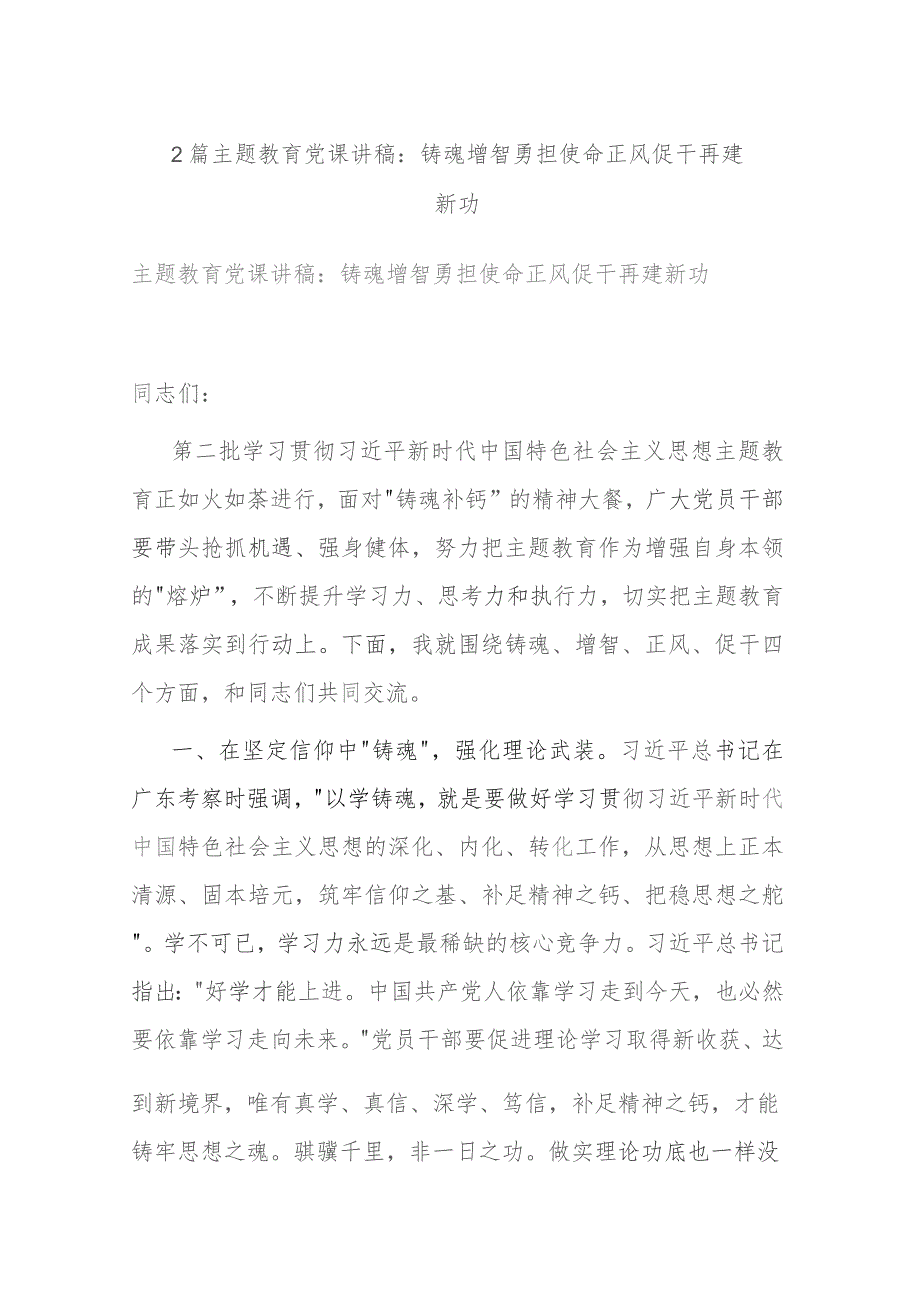 2篇主题教育党课讲稿：铸魂增智勇担使命正风促干再建
新功
主题教育党课讲稿：铸魂增智勇担使命正风促干再建新功
同志们：
第二批学习贯彻习近平新时代中国特色社会主义思想主题教
育正如火如荼进行，面对"铸魂补钙”的精神大餐，广大党员干部
要带头抢抓机遇、强身健体，努力把主题教育作为增强自身本领
的"熔炉”，不断提升学习力、思考力和执行力，切实把主题教育
成果落实到行动上。下面，我就围绕铸魂、增智、正风、促干四
个方面，和同志们共同交流。
一、在坚定信仰中"铸魂"，强化理论武装。习近平总书记在
广东考察时强调，"以学铸魂，就是要做好学习贯彻习近平新时代
中国特色社会主义思想的深化、内化、转化工作，从思想上正本
清源、固本培元，筑牢信仰之基、补足精神之钙、把稳思想之舵
"。学不可已，学习力永远是最稀缺的核心竞争力。习近平总书记
指出："好学才能上进。中国共产党人依靠学习走到今天，也必然
要依靠学习走向未来。"党员干部要促进理论学习取得新收获、达
到新境界，唯有真学、真信、深学、笃信，补足精神之钙，才能
铸牢思想之魂。骐骥千里，非一日之功。做实理论功底也一样没